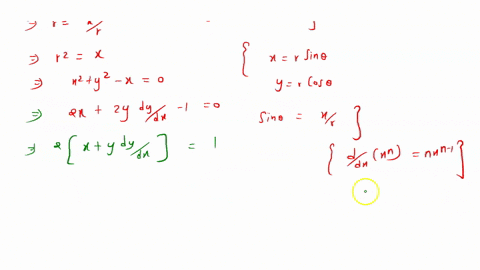 ⇒ r = x/r
⇒ r² = x
⇒ x² + y² - x = 0
⇒ 2x + 2y dy/dx - 1 = 0
⇒ 2[x + y dy/dx] = 1
{ x = r sinθ
y = r cosθ
sinθ = x/r }
{ d/dx (xⁿ) = nxⁿ⁻¹ }